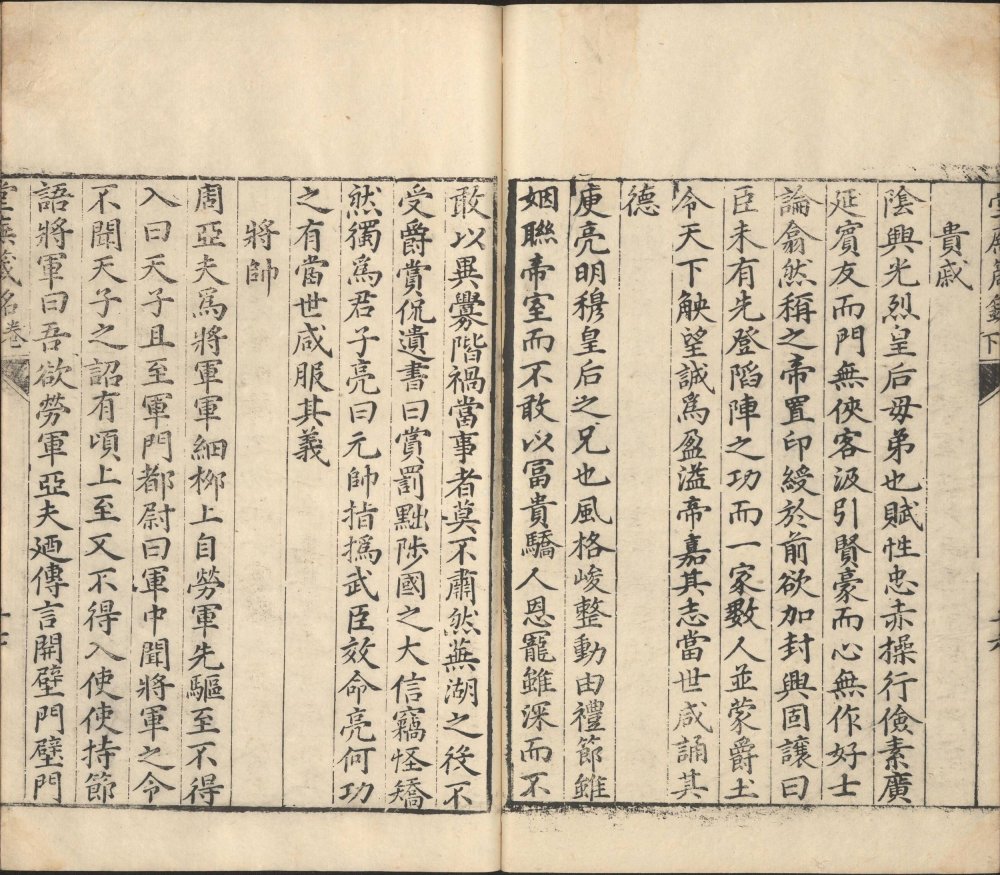 貴戚
陰興光烈皇后母弟也賦性忠赤操行儉素廣
延賓友而門無俠客汲引賢豪而心無作好士
論翕然稱之帝置印綬於前欲加封興固讓曰
臣未有先登陷陣之功而一家數人並蒙爵土
令天下觖望誠爲盈溢帝嘉其志當世咸誦其
德
庾亮明穆皇后之兄也風格峻整動由禮節雖
姻聯帝室而不敢以冨貴驕人恩寵雖深而不
敢以異釁階禍當事者莫不肅然蕪湖之後不
受爵賞侃遺書曰賞罰黜陟國之大信竊怪矯
然獨爲君子亮曰元帥指撝武臣效命亮何功
之有當世咸服其義
將帥
周亞夫爲將軍軍細柳上自勞軍先驅至不得
入曰天子且至軍門都尉曰軍中聞將軍之令
不聞天子之詔有頃上至又不得入使使持節
語將軍曰吾欲勞軍亞夫廼傳言開壁門壁門